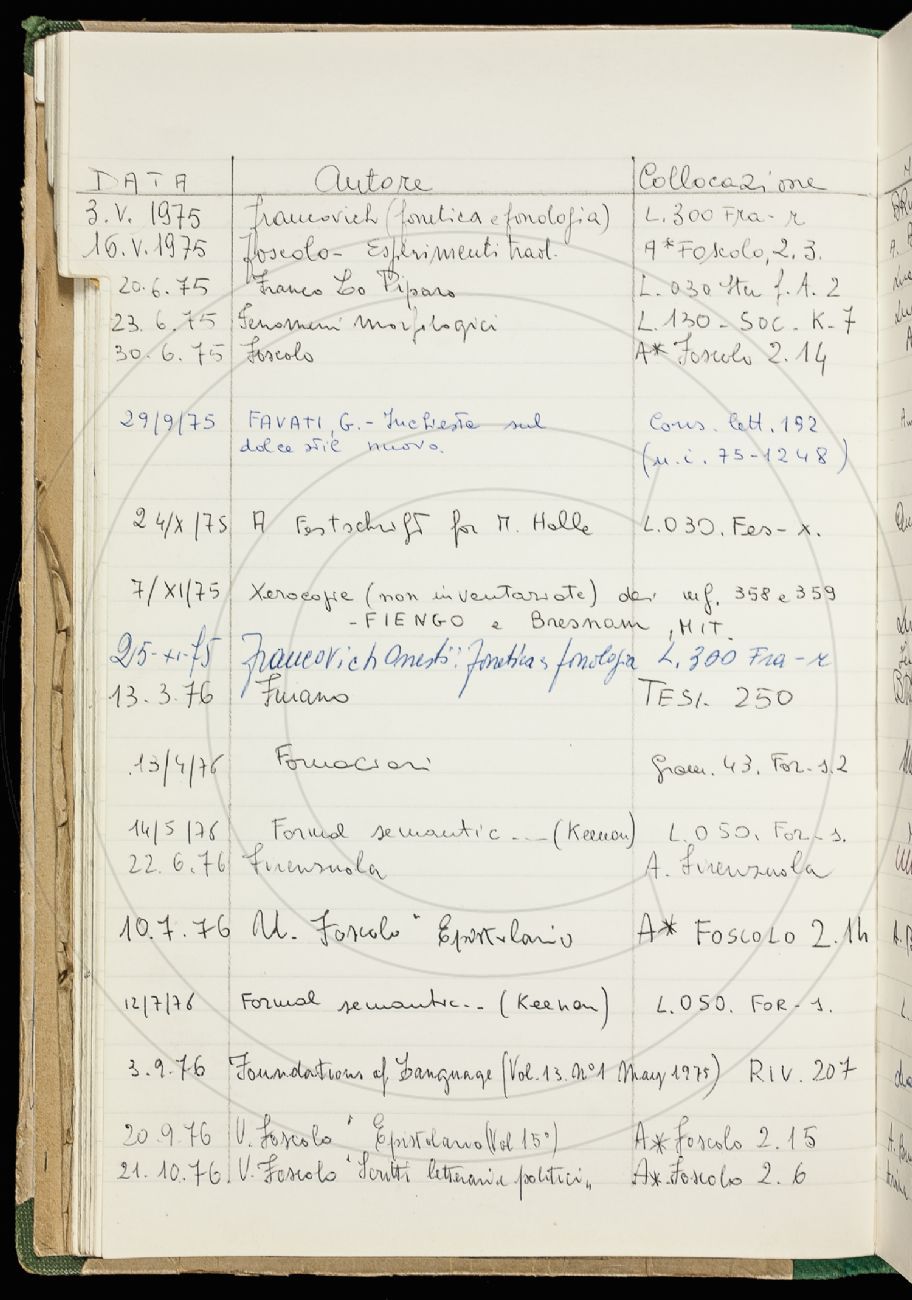 DATA Autore Collocazione
3.V. 1975 Francovich (fonetica e fonologia) L.300 Fra-r
16.V.1975 Foscolo - Esperimenti trad. A*Foscolo, 2.3.
20.6.75 Franco Lo Piparo L.030 Stu f.A.2
23.6.75 Fenomeni morfologici L.130-SOC.K-7
30.6.75 Foscolo A* Foscolo 2.14
29/9/75 FAVATI, G.- Inchiesta sul Cons. lett. 192
dolce stil nuovo. (n.i. 75-1248)
24/X/75 A Festschrift for M. Halle L.030.Fes-x.
7/XI/75 Xerocopie (non inventariate) dei mf. 358 e 359
-FIENGO e Bresnam, MIT.
25-XI-75 Francovich Onesti: fonetica e fonologia L.300 Fra-r
13.3.76 Furano TESI. 250
13/4/76 Fornaciari Gram. 43. For-s.2
14/5/76 Formal semantic --- (Keenan) L.050. For-s.
22.6.76 Firenzuola A. Firenzuola
10.7.76 U. Foscolo " Epistolario A* FOSCOLO 2.14
12/7/76 Formal semantic-- (Keenan) L.050. FOR-s.
3.9.76 Foundations of Language (Vol.13. N°1 May 1975) RIV. 207
20.9.76 V. Foscolo " Epistolario (Vol 15°) A* Foscolo 2.15
21.10.76 V. Foscolo "Scritti letterari e politici" A*.Foscolo 2.6